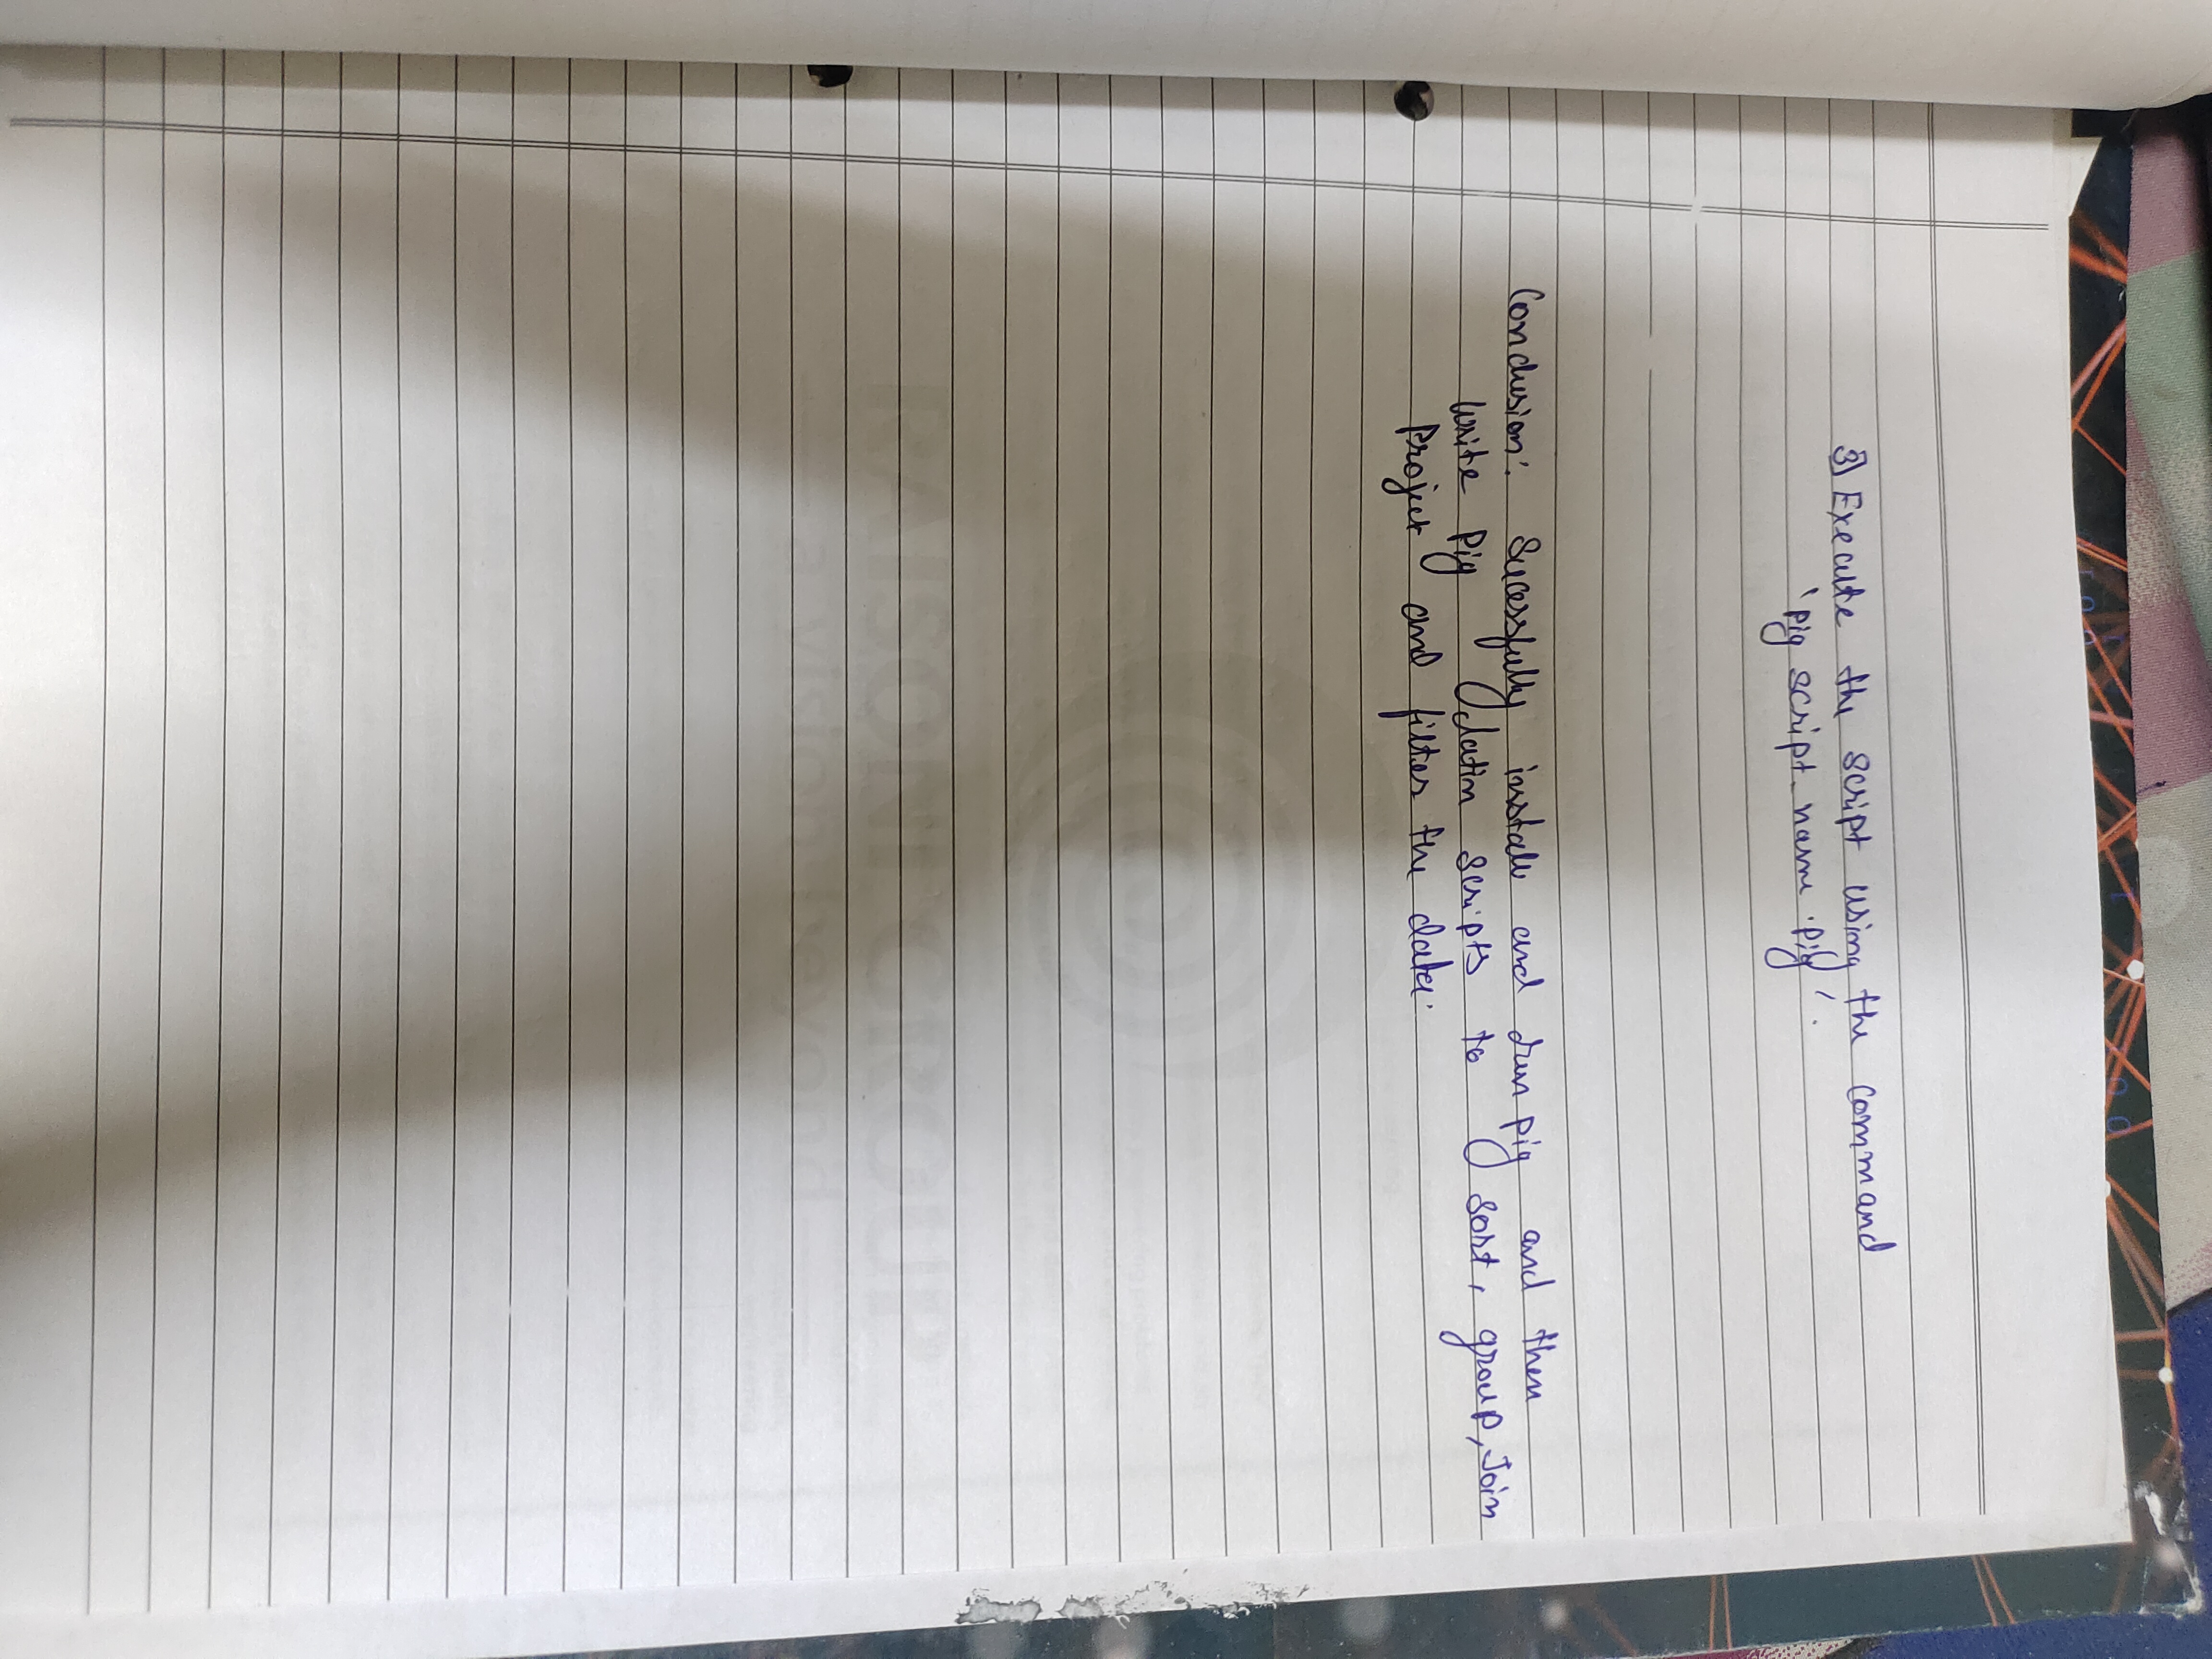 3] Execute the script using the command
'Pig script_name.pig'.
Conclusion: Sucessfully install and run pig and then
write Pig latin scripts to sort, group, Join
Project and filter the data.
RAISONI GROUP
a vision beyond